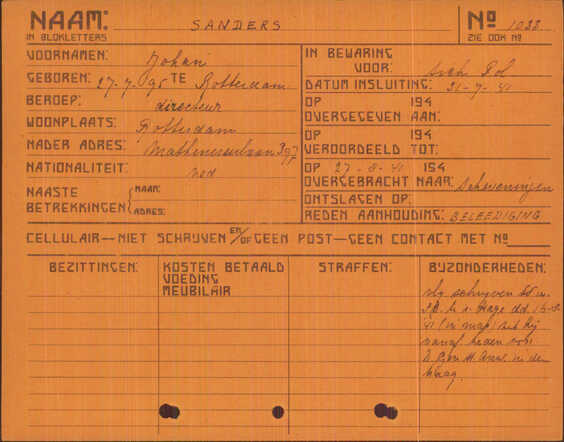 NAAM: SANDERS Nº 1033
IN BLOKLETTERS ZIE OOK Nº
VOORNAMEN: Johan
GEBOREN: 27-7-95 TE Rotterdam
BEROEP: directeur
WOONPLAATS: Rotterdam
NADER ADRES: Mathenesserlaan 397
NATIONALITEIT: ned
NAASTE BETREKKINGEN { NAAM:
ADRES:
IN BEWARING
VOOR: Sich Pol
DATUM INSLUITING: 31-7-41
OP 194
OVERGEGEVEN AAN:
OP 194
VEROORDEELD TOT:
OP 27-8-41 194
OVERGEBRACHT NAAR: Scheveningen
ONTSLAGEN OP:
REDEN AANHOUDING: BELEEDIGING
CELLULAIR—NIET SCHRIJVEN EN/OF GEEN POST—GEEN CONTACT MET Nº
BEZITTINGEN: KOSTEN BETAALD STRAFFEN: BIJZONDERHEDEN:
VOEDING
MEUBILAIR
schrijven
(in map) zit hij
vanaf heden voor
in den
Haag.